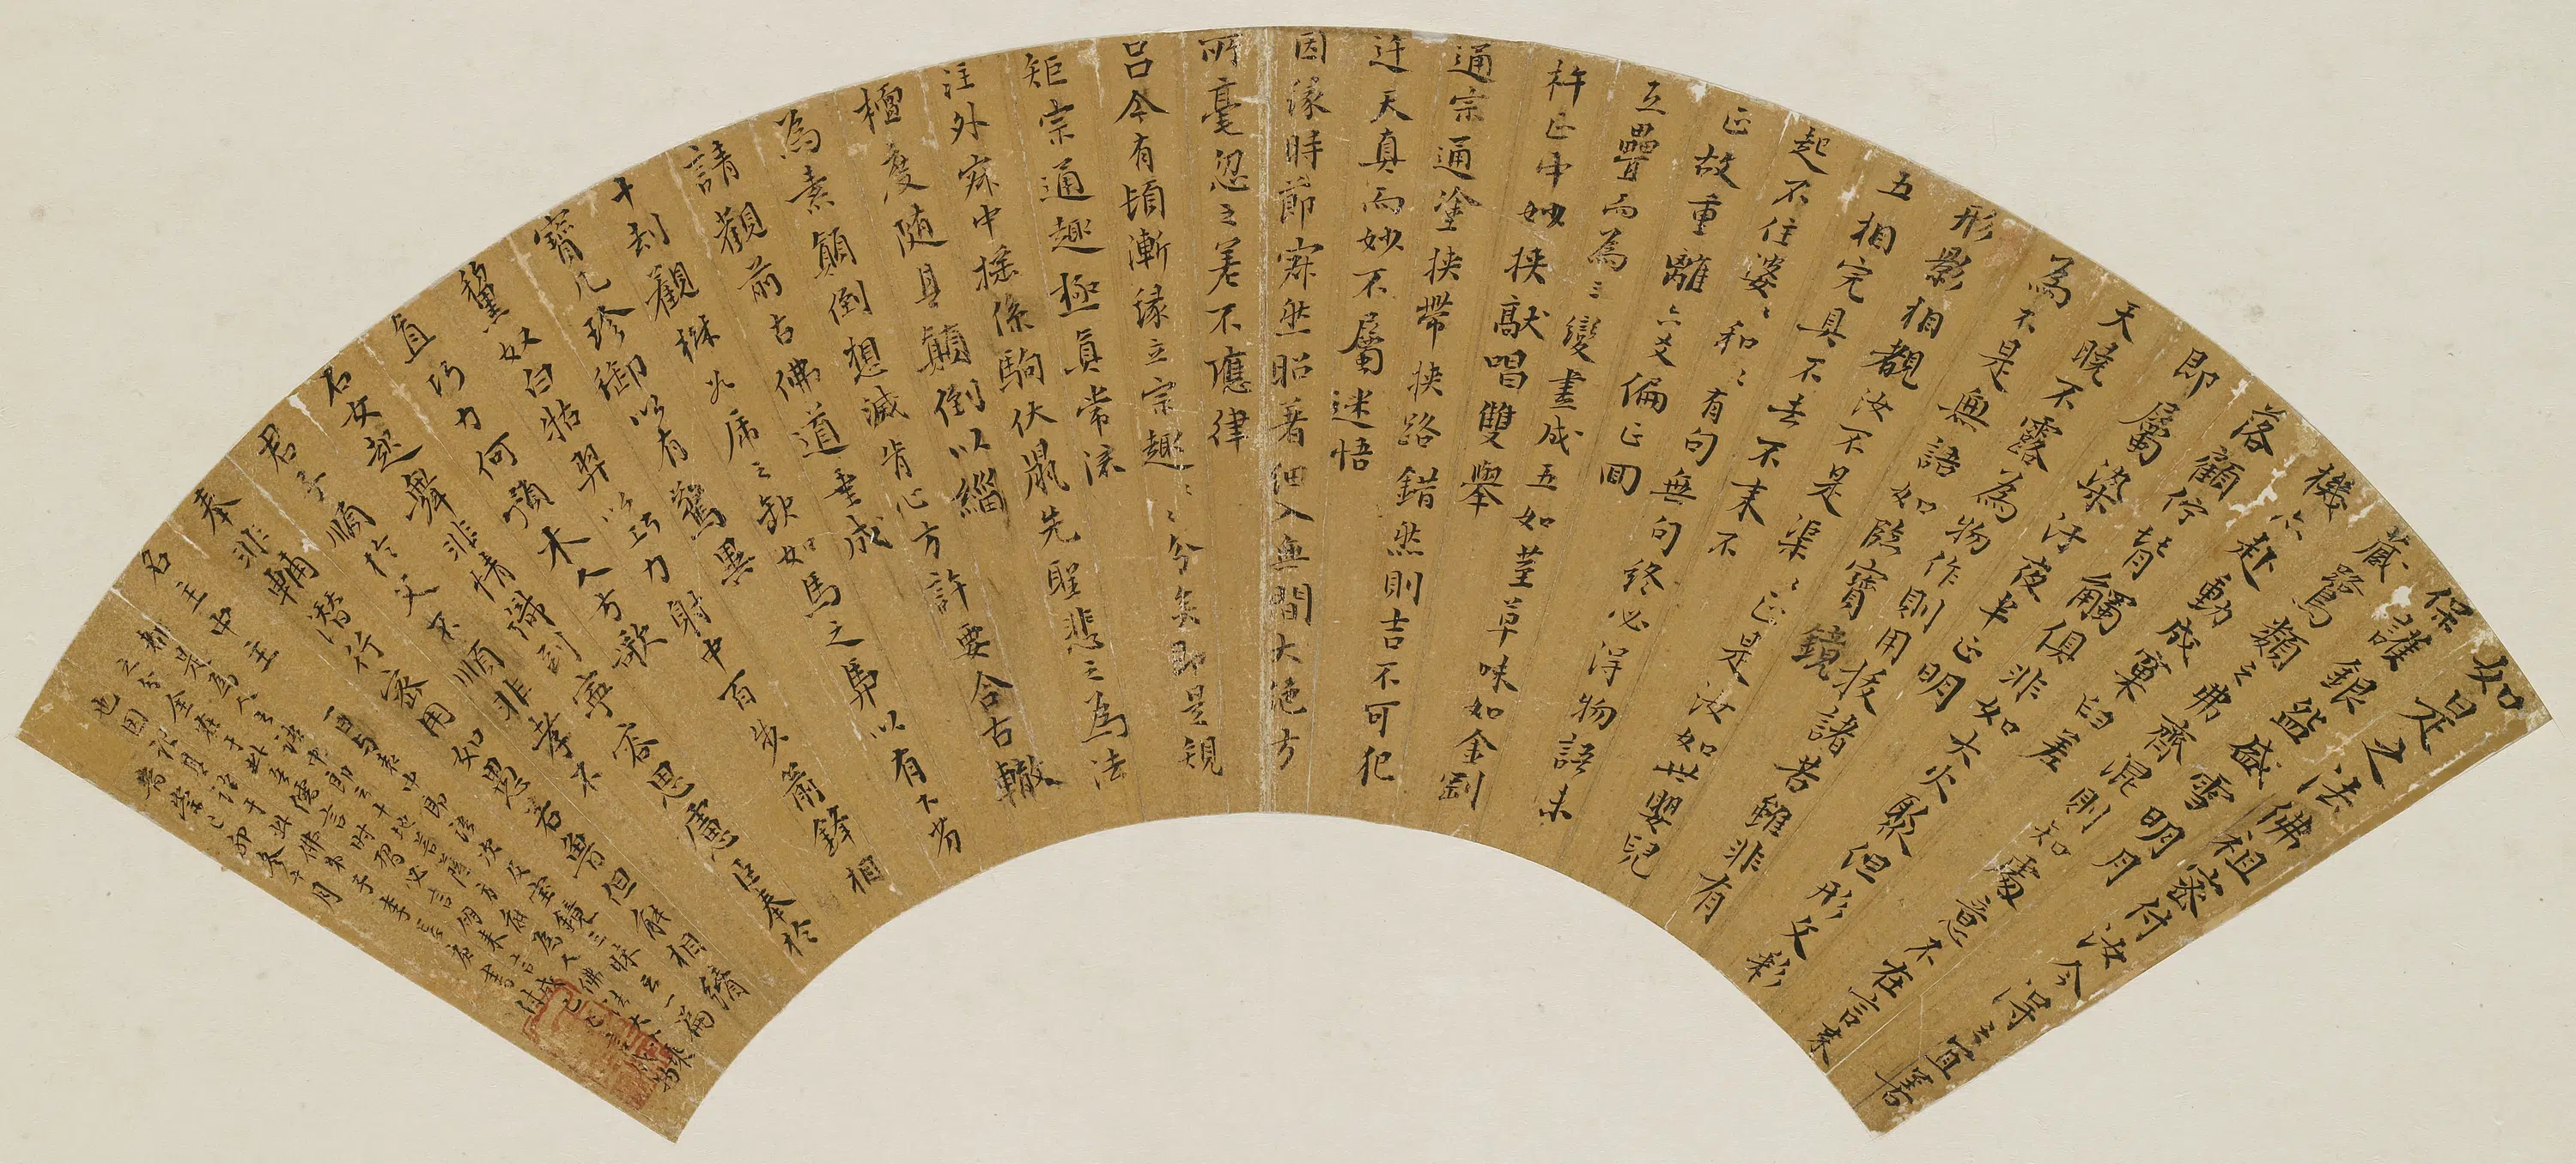 如是之法佛祖密付汝今得之宜善
保護銀盌盛雪明月
藏鷺類之弗齊混則知處意不在言来
機亦赴動成窠臼差
落顧佇背觸俱非如大火聚但形文彩
即屬染汚夜半正明
天曉不露為物作則用拔諸苦雖非有
為不是無語如臨寶鏡
形影相覩汝不是渠〻正是汝如世嬰兒
五相完具不去不来不
起不住婆〻和〻有句無句終必得物語未
正故重離六爻偏正回
互疊而為三變盡成五如荎草味如金剛
杵正中妙挾敲唱雙舉
通宗通塗挾帶挾路錯然則吉不可犯
迕天真而妙不屬迷悟
因緣時節寂然昭著細入無間大絕方
所毫忽之差不應律
呂今有頓漸緣立宗趣〻〻分矣即是規
矩宗通趣極真常流
注外寂中搖係駒伏鼠先聖悲之為法
檀度隨其顛倒以緇
為素顛倒想滅肯心方許要合古轍
請觀前古佛道垂成
十劫觀樹如虎之缺如馬之馵以有下劣
寶几珍御以有驚異
黧奴白牯羿以巧力射中百步箭鋒相
直巧力何預木人方歌
石女起舞非情識到寧容思慮臣奉於
君子順於父不順非孝不
奉非輔潛行密用如愚若魯但能相續
名主中主
及寶鏡三昧云一為
己卯冬十月